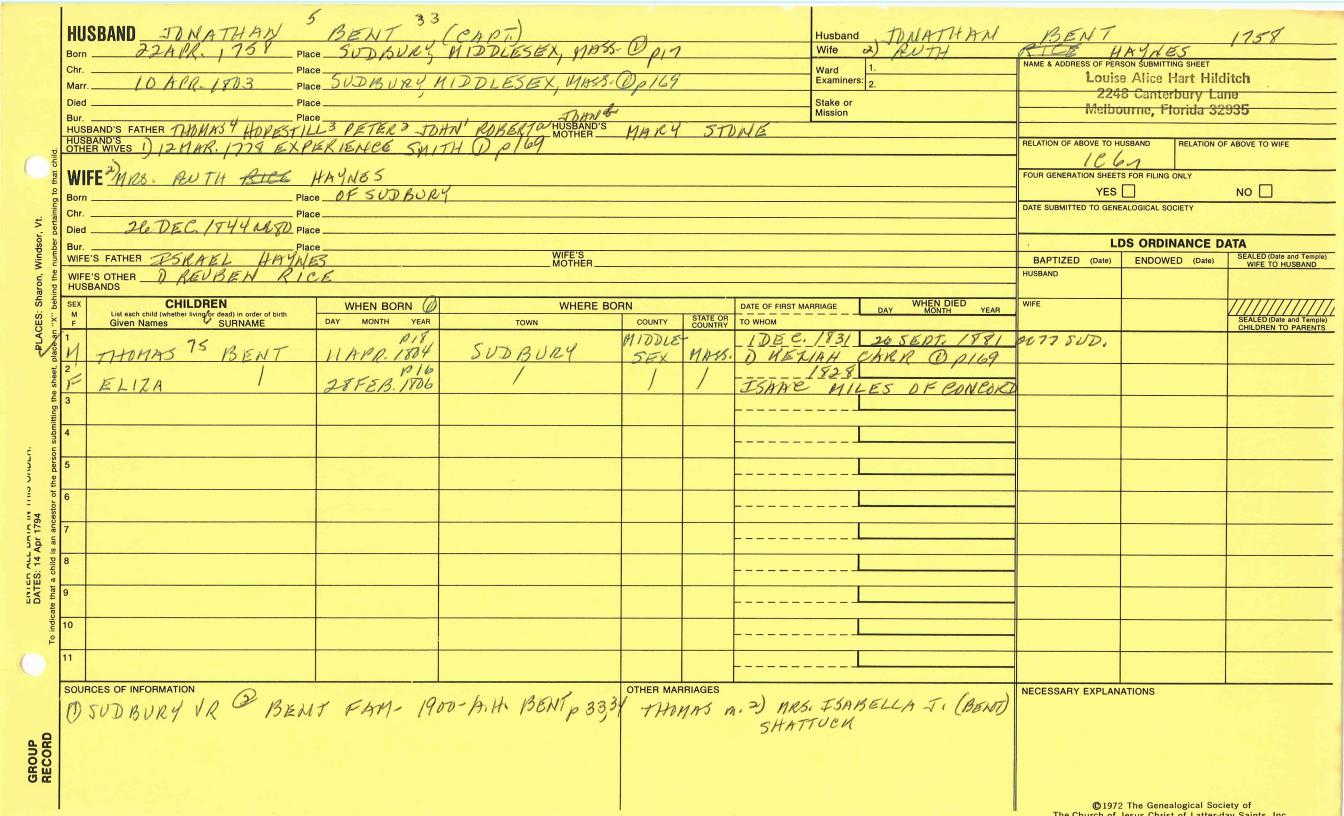 HUSBAND JONATHAN 5 BENT 33 (CAPT.)
Born 22 APR. 1758 Place SUDBURY, MIDDLESEX, MASS. ① p17
Chr. Place
Marr. 10 APR. 1803 Place SUDBURY, MIDDLESEX, MASS. ① p169
Died Place
Bur. Place
HUSBAND'S FATHER THOMAS4 HOPESTILL3 PETER2 JOHN1 ROBERTa JOHNb HUSBAND'S MOTHER MARY STONE
HUSBAND'S OTHER WIVES 1) 12 MAR. 1778 EXPERIENCE SMITH ① p169
WIFE 2) MRS. RUTH RICE HAYNES
Born Place OF SUDBURY
Chr. Place
Died 26 DEC. 1844 Place
Bur. Place
WIFE'S FATHER ISRAEL HAYNES WIFE'S MOTHER
WIFE'S OTHER HUSBANDS 1) REUBEN RICE
Husband JONATHAN BENT 1758
Wife 2) RUTH RICE HAYNES
Ward Examiners: 1.
2.
Stake or Mission
NAME & ADDRESS OF PERSON SUBMITTING SHEET
Louise Alice Hart Hilditch
2248 Canterbury Lane
Melbourne, Florida 32935
RELATION OF ABOVE TO HUSBAND RELATION OF ABOVE TO WIFE
1C6r
FOUR GENERATION SHEETS FOR FILING ONLY
YES NO
DATE SUBMITTED TO GENEALOGICAL SOCIETY
LDS ORDINANCE DATA
BAPTIZED (Date) ENDOWED (Date) SEALED (Date and Temple) WIFE TO HUSBAND
HUSBAND
WIFE
SEALED (Date and Temple) CHILDREN TO PARENTS
SEX M F CHILDREN List each child (whether living or dead) in order of birth Given Names SURNAME
WHEN BORN ① DAY MONTH YEAR
WHERE BORN TOWN COUNTY STATE OR COUNTRY
DATE OF FIRST MARRIAGE TO WHOM
WHEN DIED DAY MONTH YEAR
1 M THOMAS 75 BENT 11 APR. 1804 p18 SUDBURY MIDDLESEX MASS. 1 DEC. 1831 20 SEPT. 1881 SUD.
1) KEZIAH CARR ① p169
2 F ELIZA 28 FEB. 1806 p16 1828
ISAAC MILES OF CONCORD
3
4
5
6
7
8
9
10
11
SOURCES OF INFORMATION
① SUDBURY VR ② BENT FAM- 1900- A.H. BENT p 33,34
OTHER MARRIAGES
THOMAS m. 2) MRS. ISABELLA J. (BENT)
SHATTUCK
NECESSARY EXPLANATIONS
©1972 The Genealogical Society of
The Church of Jesus Christ of Latter-day Saints, Inc.
GROUP RECORD
ENTER ALL DATA IN THIS ORDER:
DATES: 14 Apr 1794
PLACES: Sharon, Windsor, Vt.
To indicate that a child is an ancestor of the person submitting the sheet, place an "X" behind the number pertaining to that child.